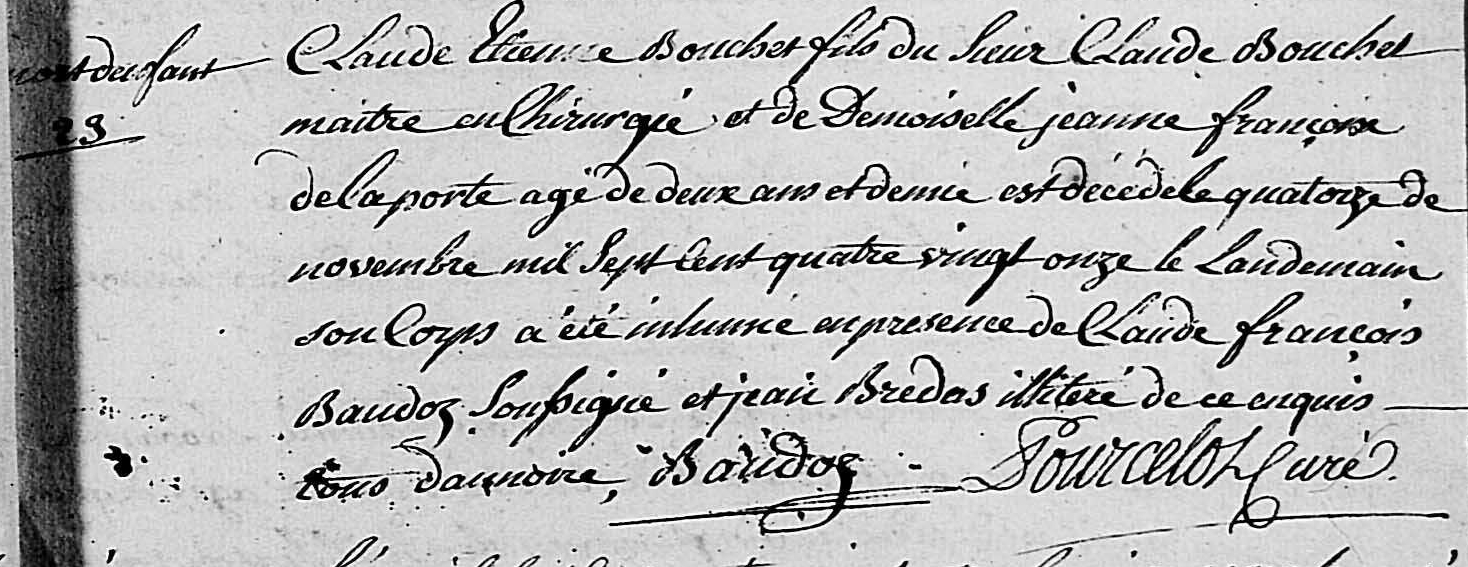 mort denfant
23
Claude Etienne Bouchet fils du sieur Claude Bouchet
maitre en Chirurgie et de Demoiselle jeanne françoise
delaporte agé de deux ans et demie est décédé le quatorze de
novembre mil Sept Cent quatre vingt onze le Landemain
son Corps a été inhumé en presence de Claude françois
Baudoz Soussigné et jean Bredas illiteré de ce enquis
tous dannoire, Baudoz Pourcelot Curé.